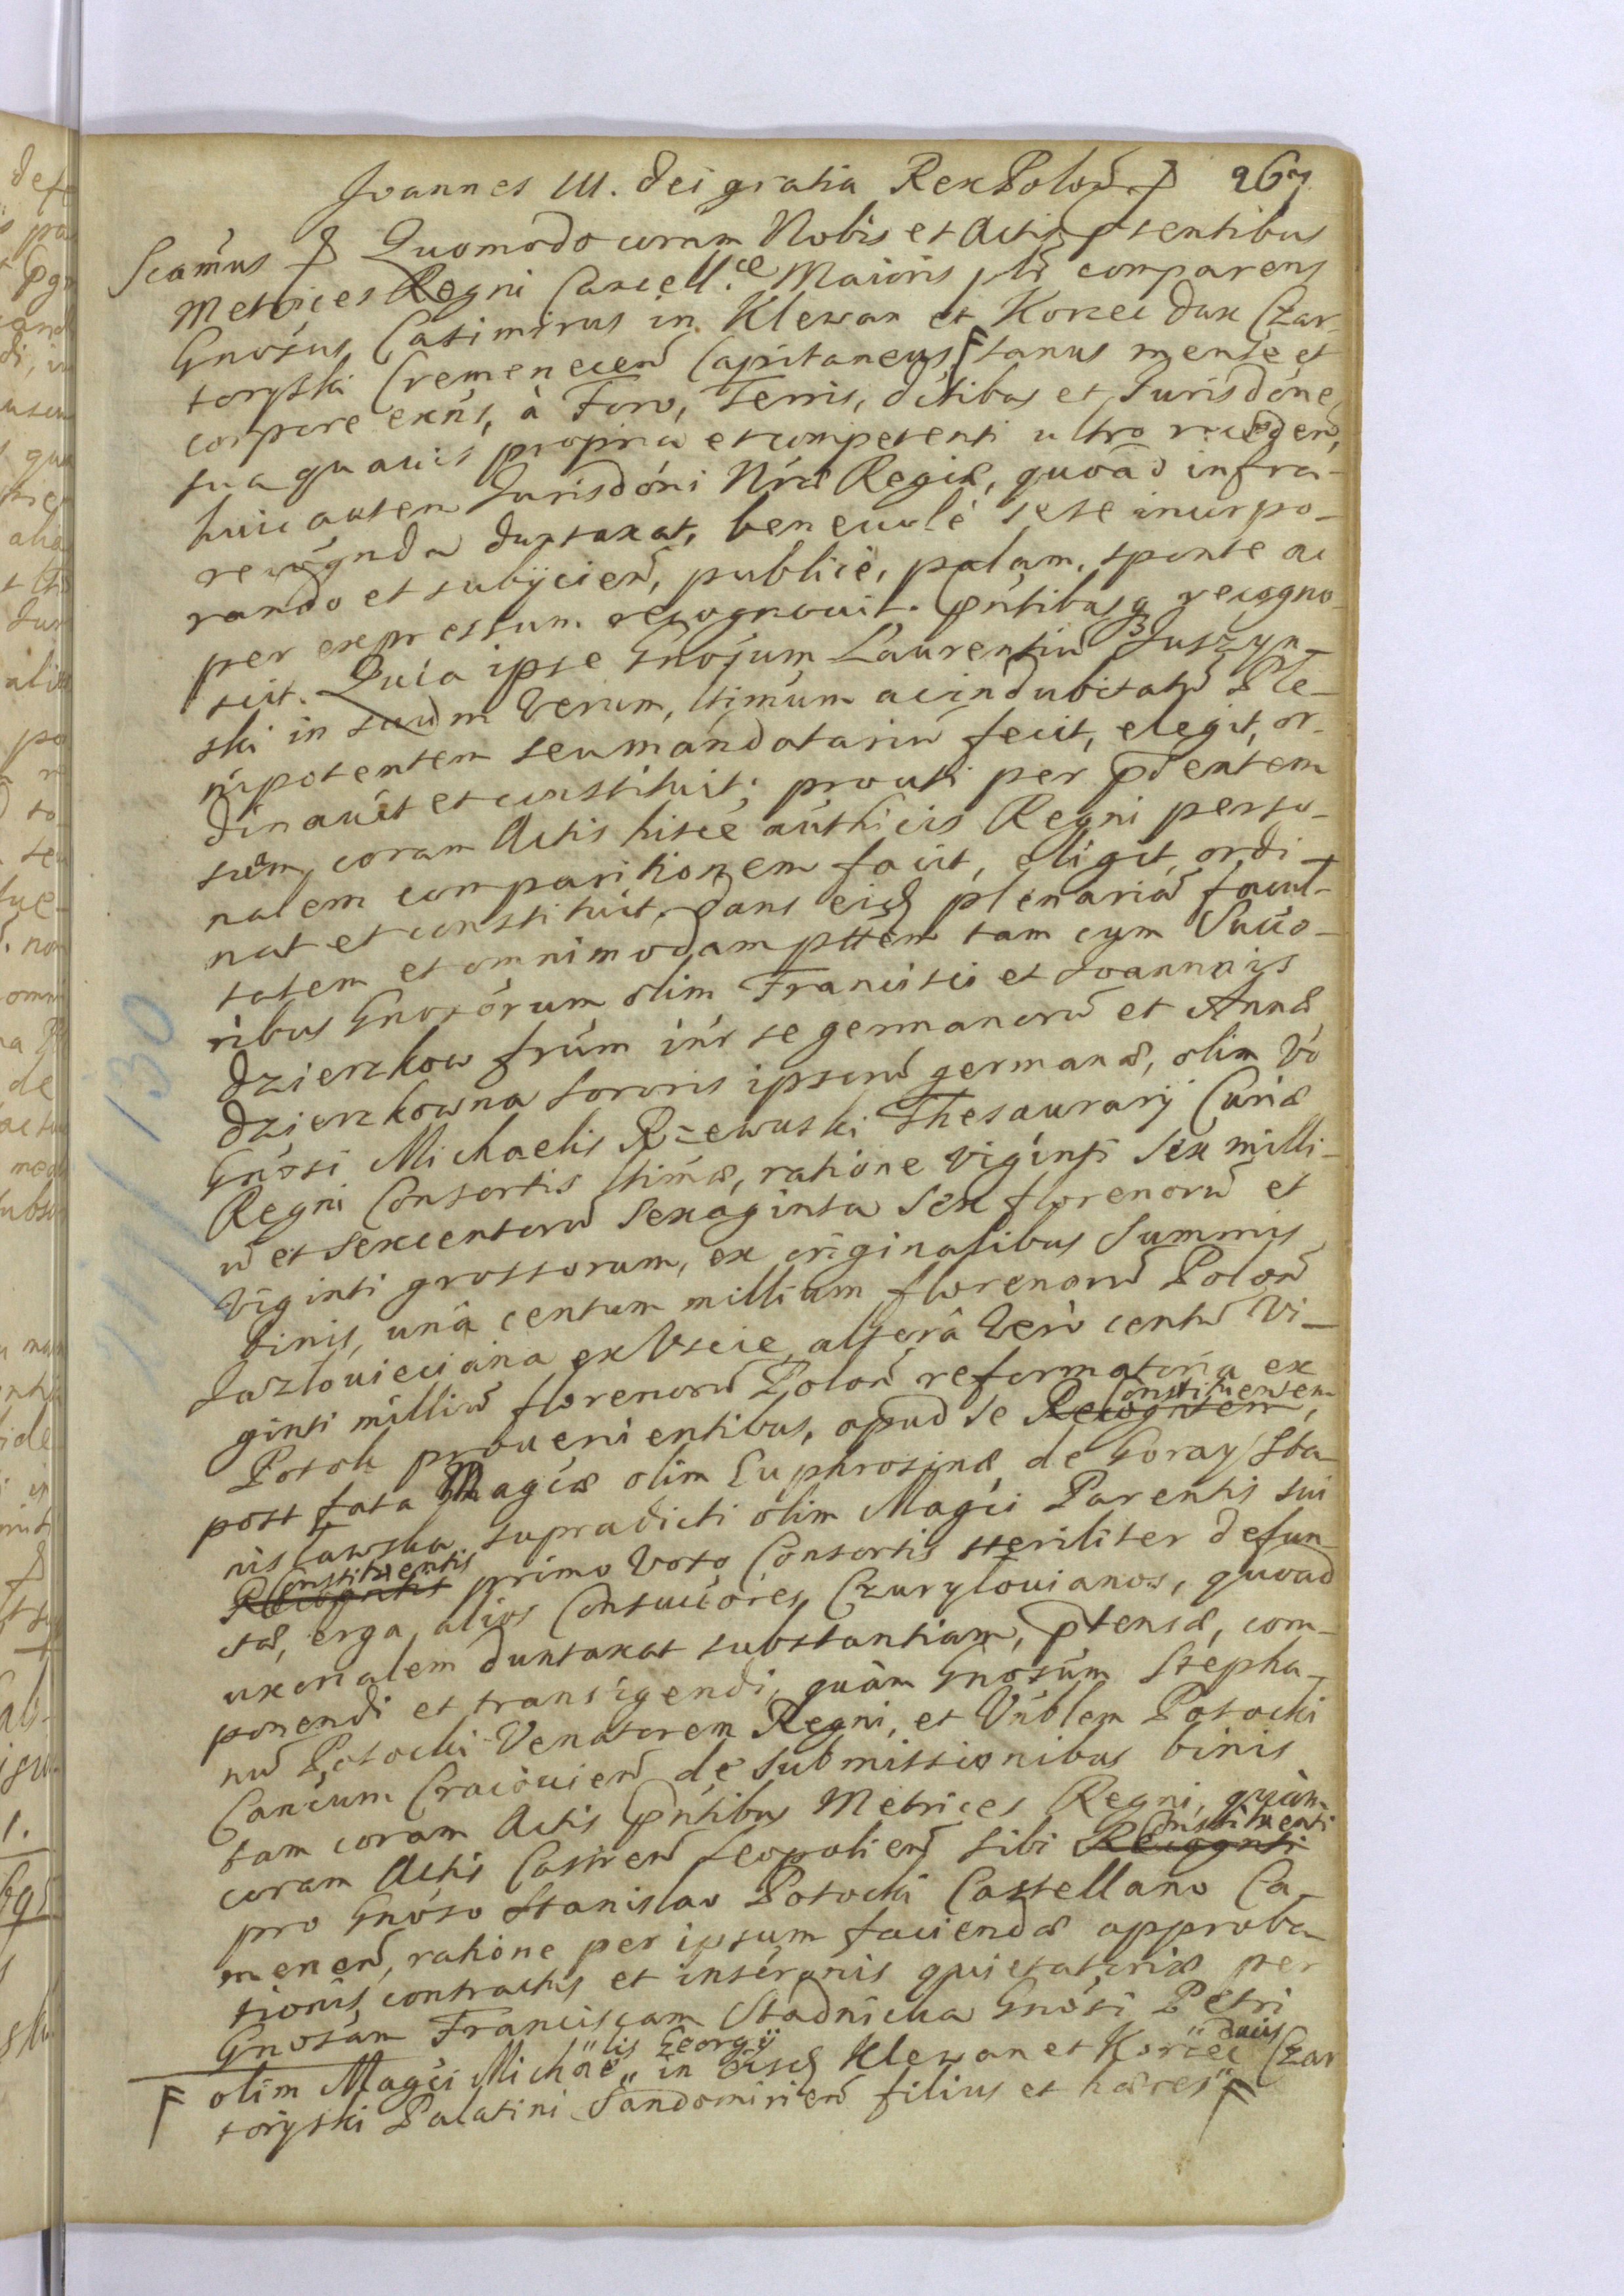 Joannes III. Dei gratia Rex Polon̄ 267
Scāmus Quomodo coram Nobis et Actis pśentibus
Metrices Regni Cancell. Maioris plr̄ comparens
Gnośus Casimirus in Klewan et Korzec dux Czar-
toryski Cremenecen̄ Capitaneus, F sanus mente et
corpore exńs, à Foro, Terris, dśtibus et Jurisdóne
sua quauis propria et competenti ultro receden̄,
huic autem Jurisdóni Nrǽ Regiæ, quoad infra-
recógnda duntaxat, beneuolè sese incorpo-
rando et subÿcien̄, publicè, palam, sponte ac
per expressum recognouit. pńtibusq recogno-
scit. Quia ipse Gnośum Laurentiū Juszyn-
ski in suum verum, ltimum ac indubitatū Ple-
nipotentem seu mandatariū fecit, elegit, or-
dinauit et constituit; prouti per pśentem
suam coram Actis hisce authćis Regni perso-
nalem comparitionem facit, eligit, ordi-
nat et constituit. dans eid plenariā facul-
tatem et omnimodam pttem tam cum Succo-
ribus Gnosórum olim Francisci et Joannis
Dzierzkow frum inŕ se germanorū et Annæ
Dzierzkowna sororis ipsorū germanæ, olim Vo
Gnósi Michaelis Rzewuski Thesaurarÿ Curiæ
Regni Consortis ltimæ, ratione viginti sex milli-
ū et sexcentorū sexaginta sex florenorū et
viginti grossorum, ex originalibus summis
binis, unâ centum millium florenorū Polon̄
Jazlouieciana ex Vscie, alterâ verò centū vi-
ginti milliū florenorū Polon̄ reformatoria ex
Potok prouenientibus, apud se Recogntem Constituentem,
post fata Magćæ olim Euphrosinæ de Goray Sta-
nisławska supradicti olim Magći Parentis sui
Recogntis Constituentis primo voto Consortis steriliter defun-
ctæ, erga alios Consuccóres Czuryłouianos, quoad
uxorialem duntaxat substantiam, ptensæ, com-
ponendi et transigendi, quàm Gnosúm Stepha-
nū Potocki Venatorem Regni, et Vńblem Potocki
Cancúm Cracouien̄ de submissionibus binis
tam coram Actis pńtibus Metrices Regni, quàm
coram Actis Castren̄ Leopolien̄ sibi Recognti Constituenti
pro Gnóso Stanislao Potocki Castellano Ca-
menen̄, ratione per ipsum faciendæ approba-
tionis contractus et inscrónis quietatoriæ per
Gnosam Franciscam Stadnicka Gnósi Petri
F olim Magći Michae„lis Georgÿ in eisd Klewan et Korzec ducis Czar
toryski Palatini Sandomirien̄ filius et hæres F
11/130